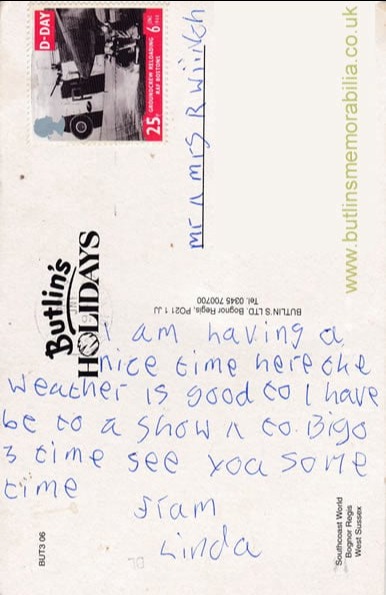 D-DAY
25p
GROUNDCREW RELOADING
RAF BOSTONS
6 JUNE
1944
mr n mrs R Wiinch
www.butlinsmemorabilia.co.uk
Butlin's
HOLIDAYS
BUTLIN'S LTD. Bognor Regis, PO21 1JJ
Tel. 0345 700700
I am having a
nice time here the
weather is good to I have
be to a show n to Bigo
3 time see you some
time
from
Linda
BUT3 06
Southcoast World
Bognor Regis
West Sussex